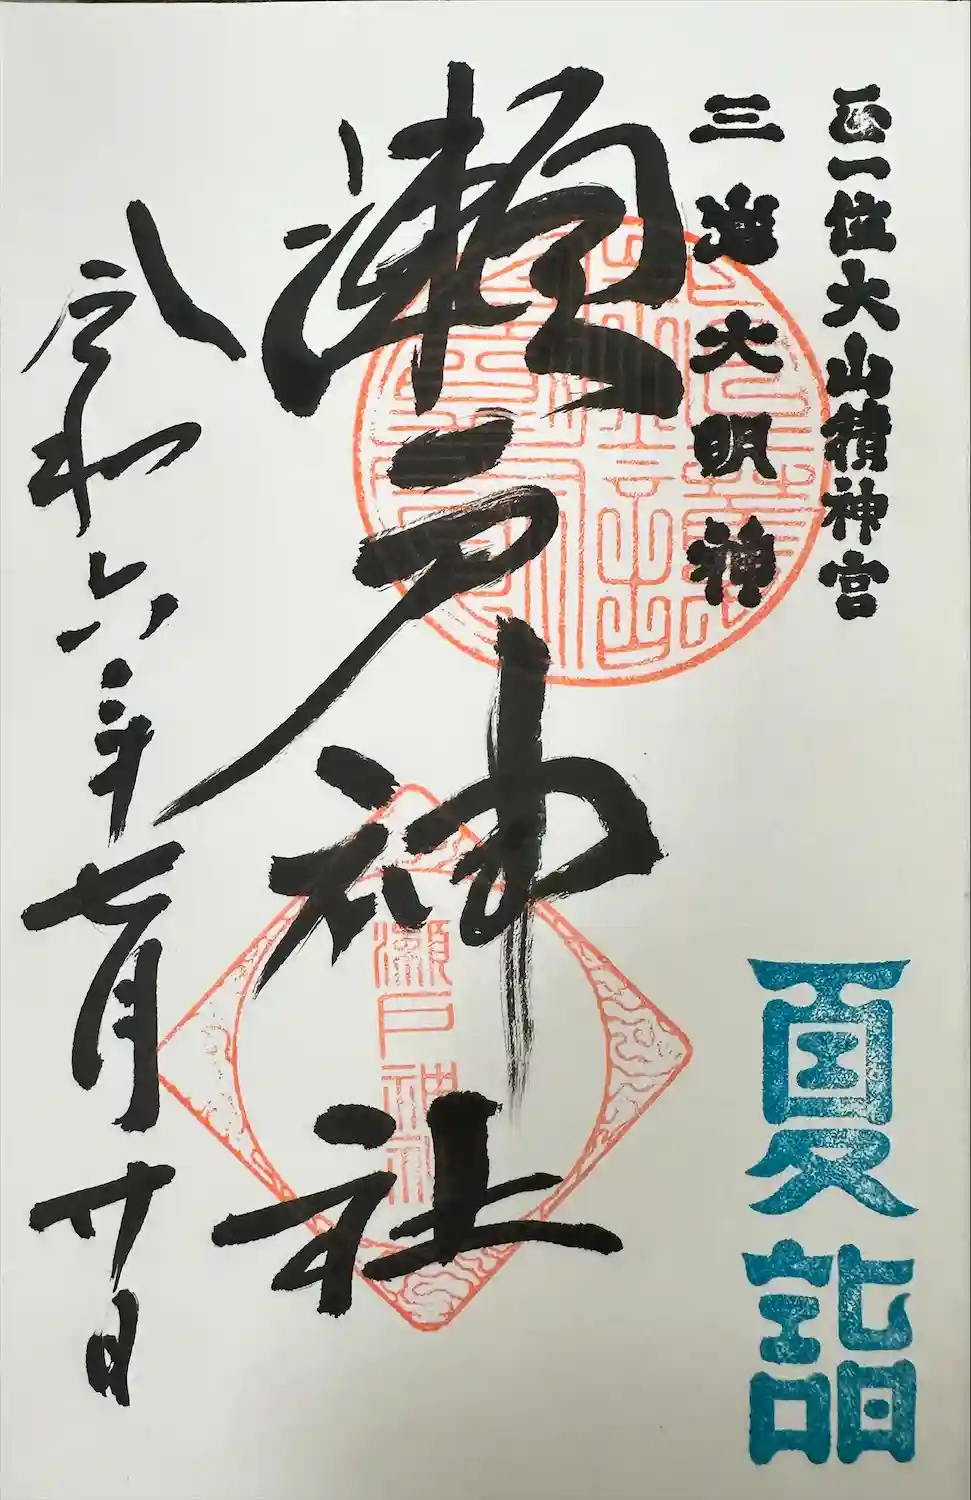 正一位大山積神宮
三嶋大明神
瀬戸神社
令和六年七月廿日
夏詣
瀬戸神社